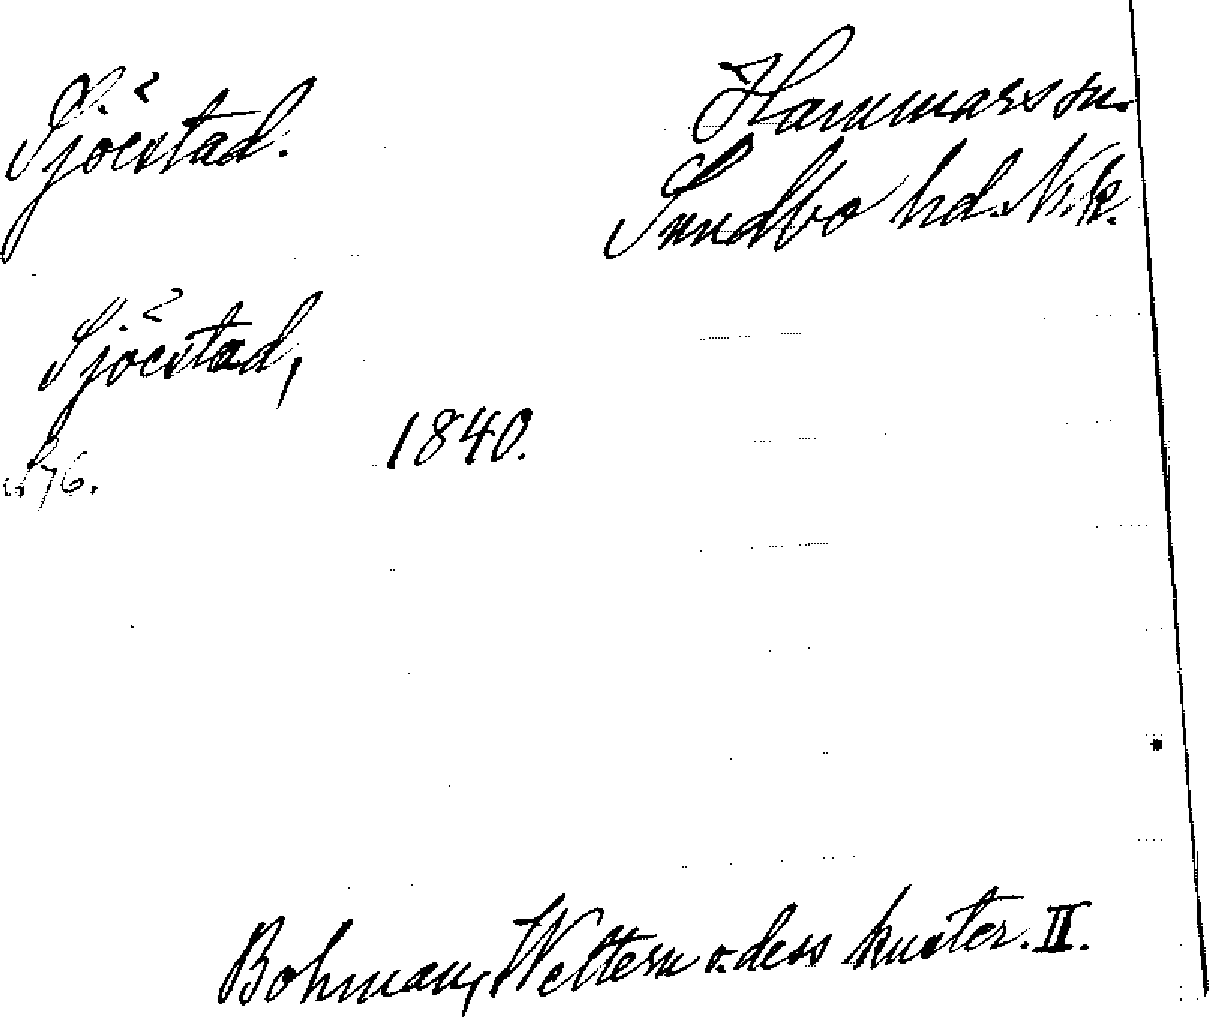 Sjöestad. Hammars sn.
Sundbo hd. Nrk.
Sjöestad,
1840.
s. 76.
Bohman, Wettern o. dess kuster. II.